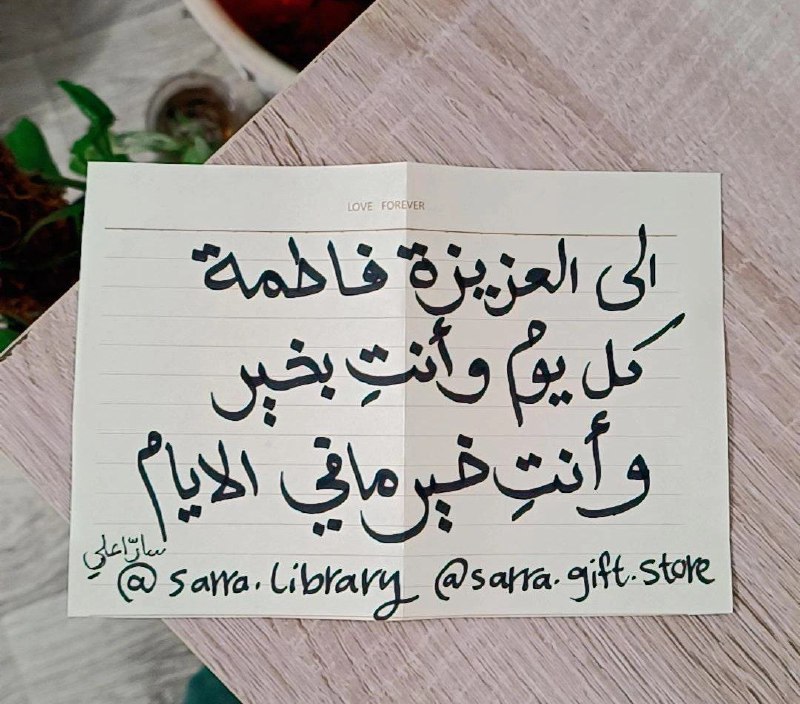 LOVE FOREVER
الى العزيزة فاطمة
كل يوم وأنتِ بخير
وأنتِ خير مافي الايام
سارّا علي
@sarra.library @sarra.gift.store